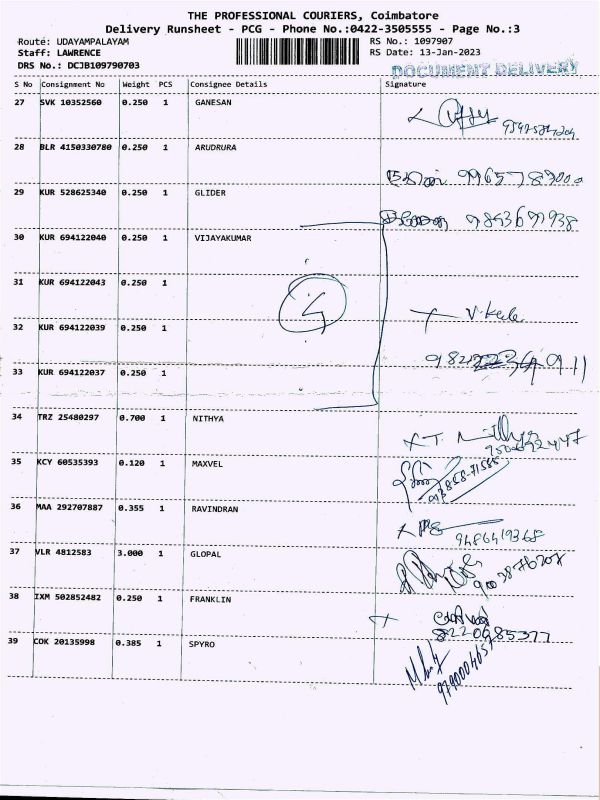 THE PROFESSIONAL COURIERS, Coimbatore
Delivery Runsheet - PCG - Phone No.:0422-3505555 - Page No.:3
Route: UDAYAMPALAYAM RS No.: 1097907
Staff: LAWRENCE RS Date: 13-Jan-2023
DRS No.: DCJB109790703 DOCUMENT DELIVERY
S No Consignment No Weight PCS Consignee Details Signature
27 SVK 10352560 0.250 1 GANESAN
28 BLR 4150330780 0.250 1 ARUDRURA
29 KUR 528625340 0.250 1 GLIDER
9843691938
30 KUR 694122040 0.250 1 VIJAYAKUMAR
31 KUR 694122043 0.250 1
4
32 KUR 694122039 0.250 1
33 KUR 694122037 0.250 1
34 TRZ 25480297 0.700 1 NITHYA
35 KCY 60535393 0.120 1 MAXVEL
36 MAA 292707887 0.355 1 RAVINDRAN
9486419368
37 VLR 4812583 3.000 1 GLOPAL
38 IXM 502852482 0.250 1 FRANKLIN
8220685377
39 COK 20135998 0.385 1 SPYRO